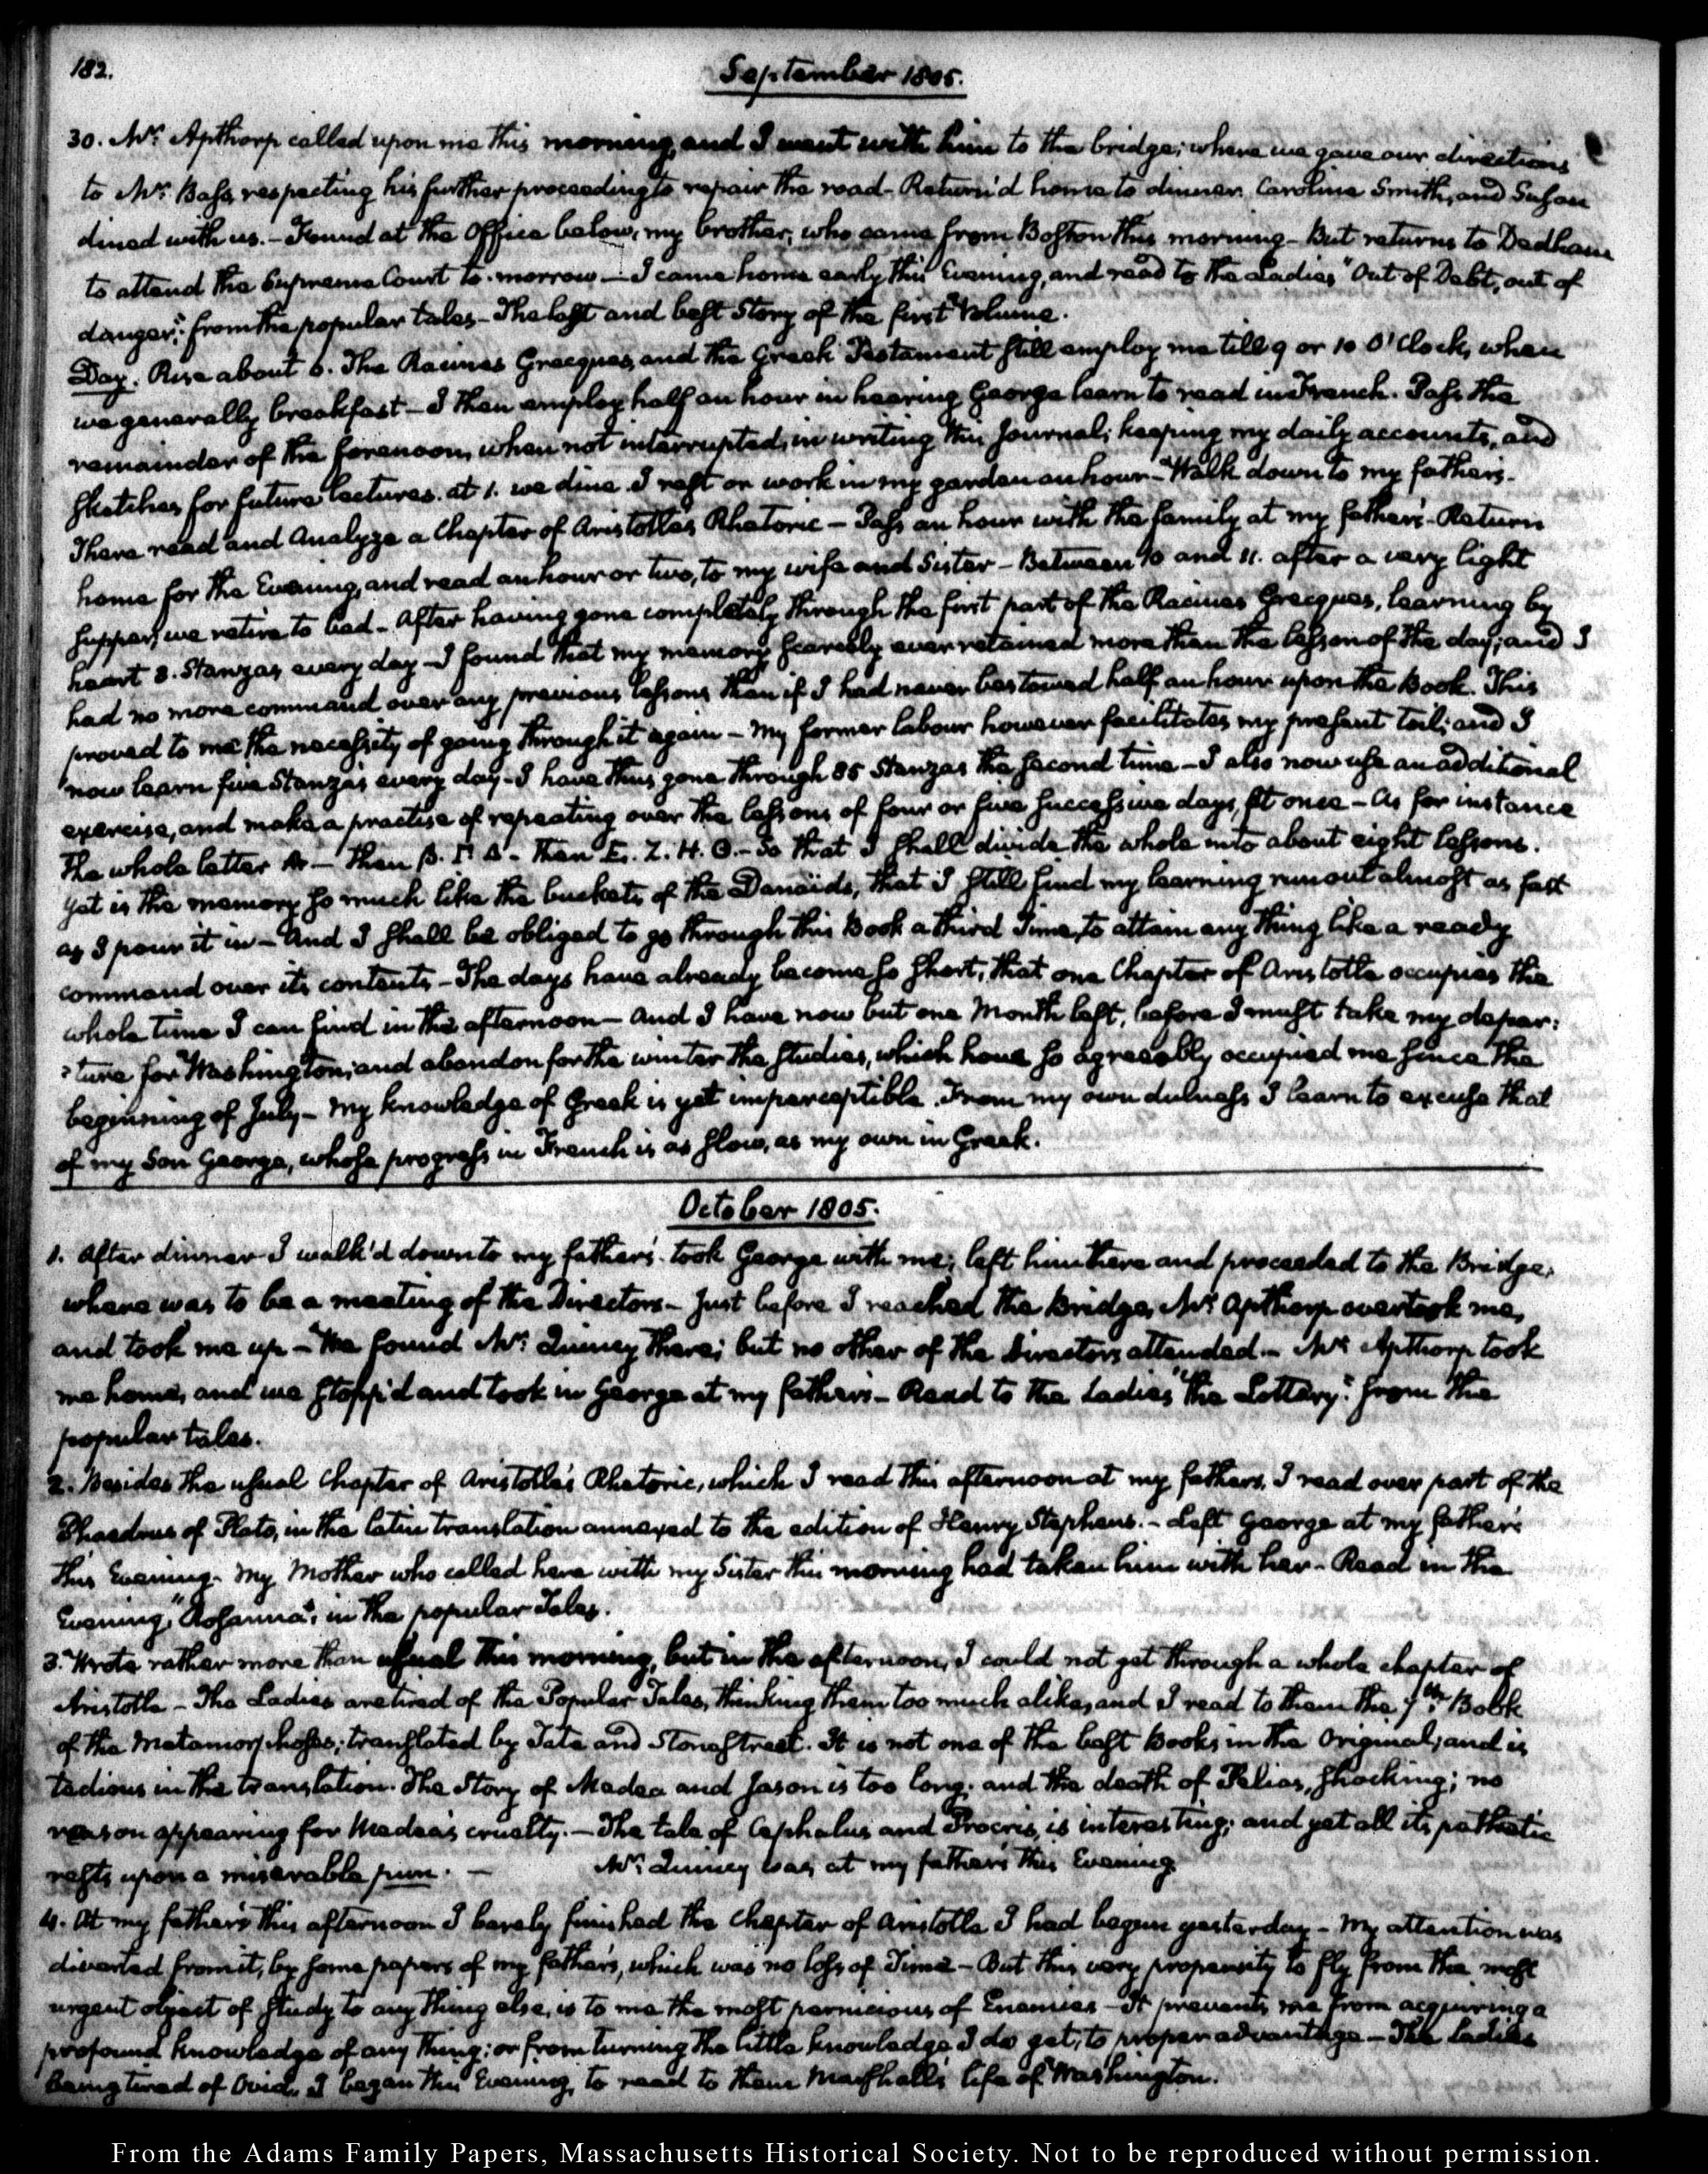 182.
September 1805.
30. Mr. Apthorp called upon me this morning, and I went with him to the bridge; where we gave our directions
to Mr. Bass, respecting his further proceeding to repair the road. Return'd home to dinner. Caroline Smith, and Susan
dined with us. – Found at the Office below, my brother, who came from Boston this morning – But returns to Dedham
to attend the Supreme Court to-morrow – I came home early this Evening, and read to the Ladies "Out of Debt, out of
danger," from the popular tales – The last and best Story of the first Volume.
Day. Rise about 6. The Racines Grecques, and the Greek Testament still employ me till 9 or 10 O'Clock, when
we generally breakfast – I then employ half an hour in hearing George learn to read in French. Pass the
remainder of the forenoon, when not interrupted, in writing this Journal; keeping my daily accounts, and
sketches for future lectures. at 1. we dine. I rest or work in my garden an hour – Walk down to my father's.
There read and Analyze a Chapter of Aristotle's Rhetoric – Pass an hour with the family at my father's – Return
home for the Evening, and read an hour or two, to my wife and Sister – Between 10 and 11. after a very light
supper, we retire to bed – After having gone completely through the first part of the Racines Grecques, learning by
heart 8. Stanzas every day – I found that my memory scarcely ever retained more than the lesson of the day; and I
had no more command over any previous lessons than if I had never bestowed half an hour upon the Book. This
proved to me the necessity of going through it again – My former labour however facilitates my present toil; and I
now learn five Stanzas every day – I have thus gone through 85 Stanzas the second time – I also now use an additional
exercise, and make a practise of repeating over the lessons of four or five successive days, at once – As for instance
The whole letter A – then B. Γ. Δ – then E. Z. H. Θ. – So that I shall divide the whole into about eight lessons.
Yet is the memory so much like the buckets of the Danaïds, that I still find my learning run out almost as fast
as I pour it in – And I shall be obliged to go through this Book a third Time, to attain any thing like a ready
command over its contents – The days have already become so short, that one Chapter of Aristotle occupies the
whole time I can find in the afternoon – And I have now but one Month left, before I must take my depar:
:ture for Washington; and abandon for the winter the studies, which have so agreeably occupied me since the
beginning of July – My knowledge of Greek is yet imperceptible. From my own dulness I learn to excuse that
of my Son George, whose progress in French is as slow, as my own in Greek.
October 1805.
1. After dinner I walk'd down to my father's. took George with me; left him there and proceeded to the Bridge,
where was to be a meeting of the Directors – Just before I reached the Bridge, Mr. Apthorp overtook me,
and took me up – We found Mr. Quincy there; but no other of the Directors attended – Mr. Apthorp took
me home, and we stopp'd and took in George at my father's – Read to the Ladies "the Lottery" from the
popular tales.
2. Besides the usual Chapter of Aristotle's Rhetoric, which I read this afternoon at my father's, I read over part of the
Phaedrus of Plato, in the latin translation annexed to the edition of Henry Stephens. – Left George at my father's
this Evening. My Mother who called here with my Sister this morning had taken him with her – Read in the
Evening, "Rosanna", in the popular Tales.
3. Wrote rather more than usual this morning, but in the afternoon, I could not get through a whole chapter of
Aristotle – The Ladies are tired of the Popular Tales, thinking them too much alike, and I read to them the 7th. Book
of the Metamorphoses; translated by Tate and Stonestreet. It is not one of the best Books in the Original; and is
tedious in the translation. The Story of Medea and Jason is too long; and the death of Pelias, shocking; no
reason appearing for Medea's cruelty. – The tale of Cephalus and Procris, is interesting; and yet all its pathetic
rests upon a miserable pun. – Mr. Quincy was at my father's this Evening.
4. At my father's this afternoon I barely finished the Chapter of Aristotle I had begun yesterday – My attention was
diverted from it, by some papers of my father's, which was no loss of Time – But this very propensity to fly from the most
urgent object of study to any thing else, is to me the most pernicious of Enemies – It prevents me from acquiring a
profound knowledge of any thing; or from turning the little knowledge I do get, to proper advantage – The Ladies
being tired of Ovid, I began this Evening, to read to them Marshall's life of Washington.
From the Adams Family Papers, Massachusetts Historical Society. Not to be reproduced without permission.